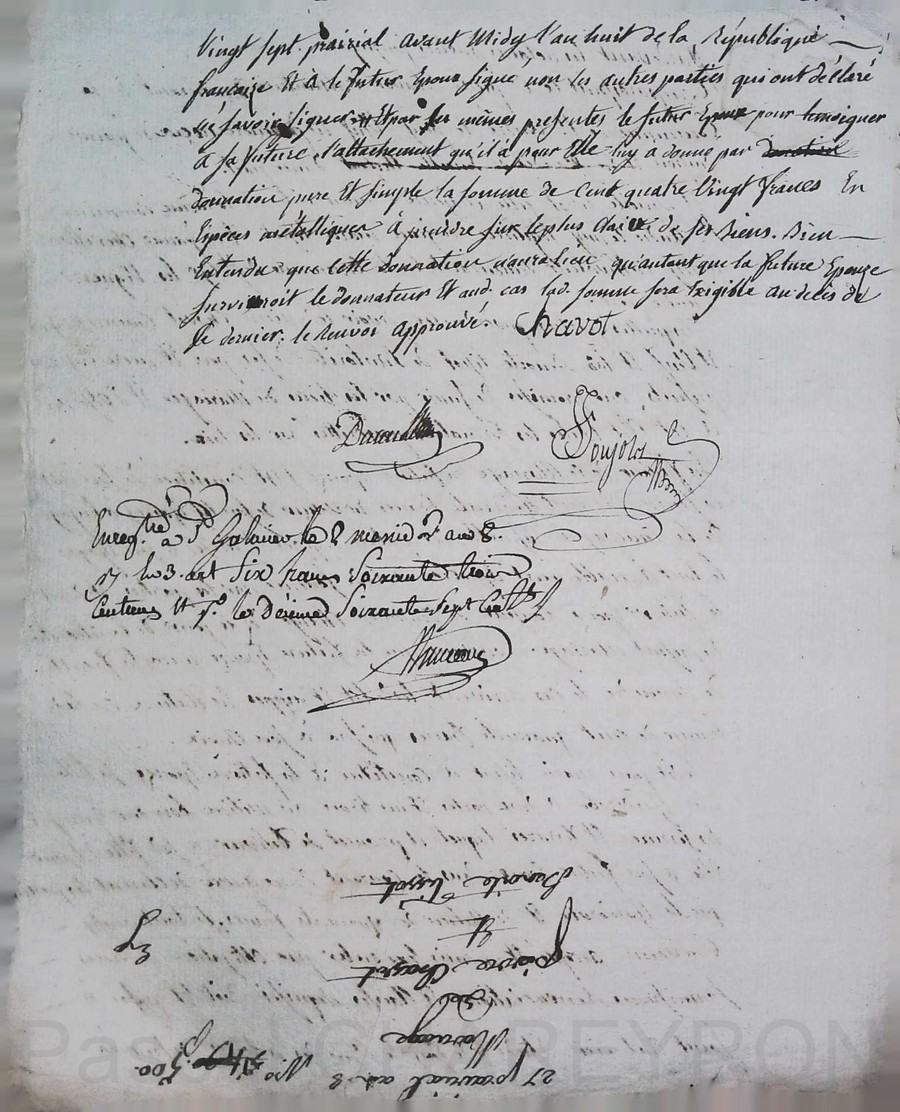 Vingt sept prairial avant Midy l'an huit de la République
française Et à le futur Epoux signé non les autres parties qui ont déclaré
ne savoir signer Et par ses mêmes présentes le futur Epoux pour temoigner
a sa future l'attachement qu'il a pour Elle luy a donné par
donnation pure Et simple la somme de Cent quatre Vingt francs En
Espèces métalliques à prendre sur le plus clair de ses Biens. Bien
Entendu que cette donnation n'aura lieu qu'autant que la future Epouze
survivroit le donnateur Et aud. cas lad. somme sera Exigible au décès de
ce dernier. le renvoi approuvé. Chavot
Enreg.tré a St Galmier le 8 messid.or an 8.
Six francs Soixante trois
Centimes et p.r le décime Soixante Sept Cent.
27 prairial an 8
Mariage
de
pierre Chavot
et
Benoite Tissot
N.o
500